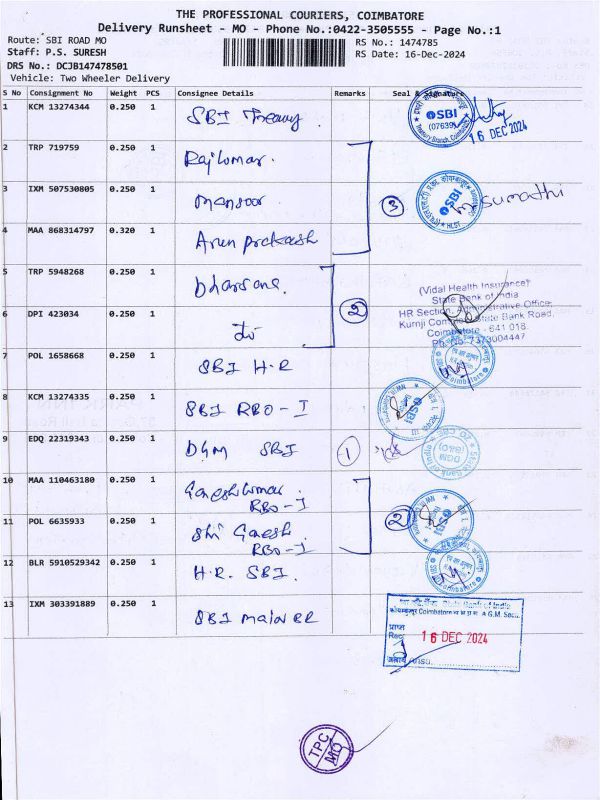 THE PROFESSIONAL COURIERS, COIMBATORE
Delivery Runsheet - MO - Phone No.:0422-3505555 - Page No.:1
Route: SBI ROAD MO
RS No.: 1474785
Staff: P.S. SURESH
RS Date: 16-Dec-2024
DRS No.: DCJB147478501
Vehicle: Two Wheeler Delivery
S No Consignment No Weight PCS Consignee Details Remarks Seal & Signature
1 KCM 13274344 0.250 1 SBI Treasury
SBI
(07639)
16 DEC 2024
2 TRP 719759 0.250 1 Rajkumar
3 IXM 507530805 0.250 1 Mansoor ③ SBI Sumathi
4 MAA 868314797 0.320 1 Arun prakash
5 TRP 5948268 0.250 1 Dharsana
(Vidal Health Insurance)
State Bank of India
HR Section, Administrative Office,
Kurnji Complex State Bank Road,
Coimbatore - 641 018.
6 DPI 423034 0.250 1 ②
7 POL 1658668 0.250 1 SBI H-R
8 KCM 13274335 0.250 1 SBI RBO-I
9 EDQ 22319343 0.250 1 DGM SBI ①
DGM
(B&O)
10 MAA 110463180 0.250 1 Ganeshkumar
RBO-I
②
11 POL 6635933 0.250 1 Shri Ganesh
RBO-I
12 BLR 5910529342 0.250 1 H.R. SBI.
13 IXM 303391889 0.250 1 SBI main BR
State Bank of India
Coimbatore
A.G.M. Sec
प्राप्त
Rec
16 DEC 2024
TPC
MO